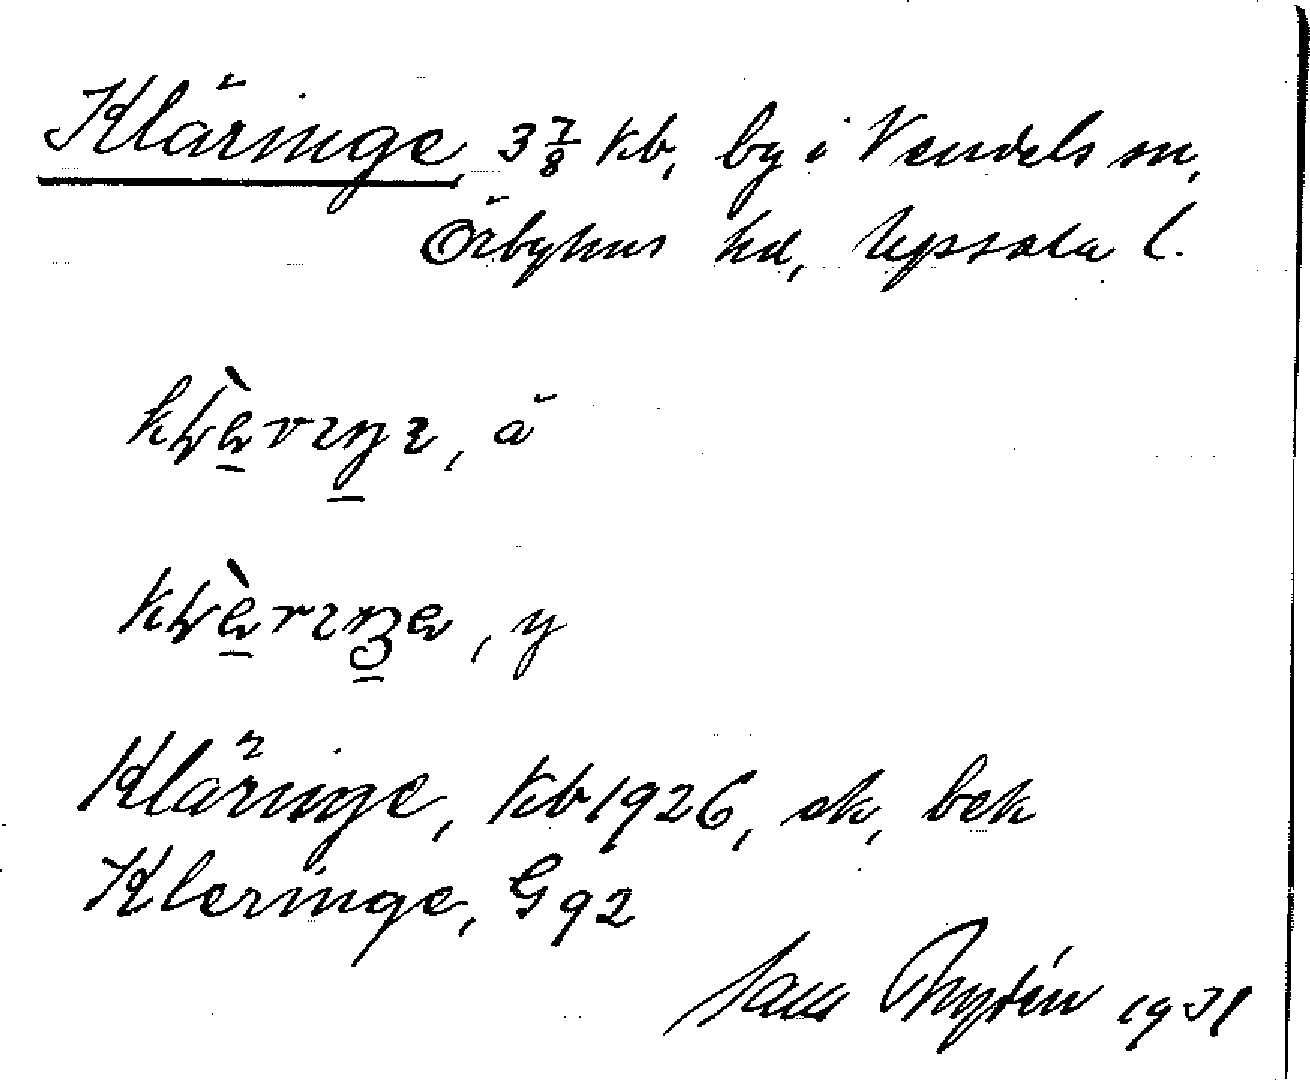 Kläringe, 3 7/8 kb, by i Vendels sn,
Örbyhus hd, Uppsala l.
, ä
, y
Kläringe, kb 1926, ek, bek
Kleringe, G 92
1931